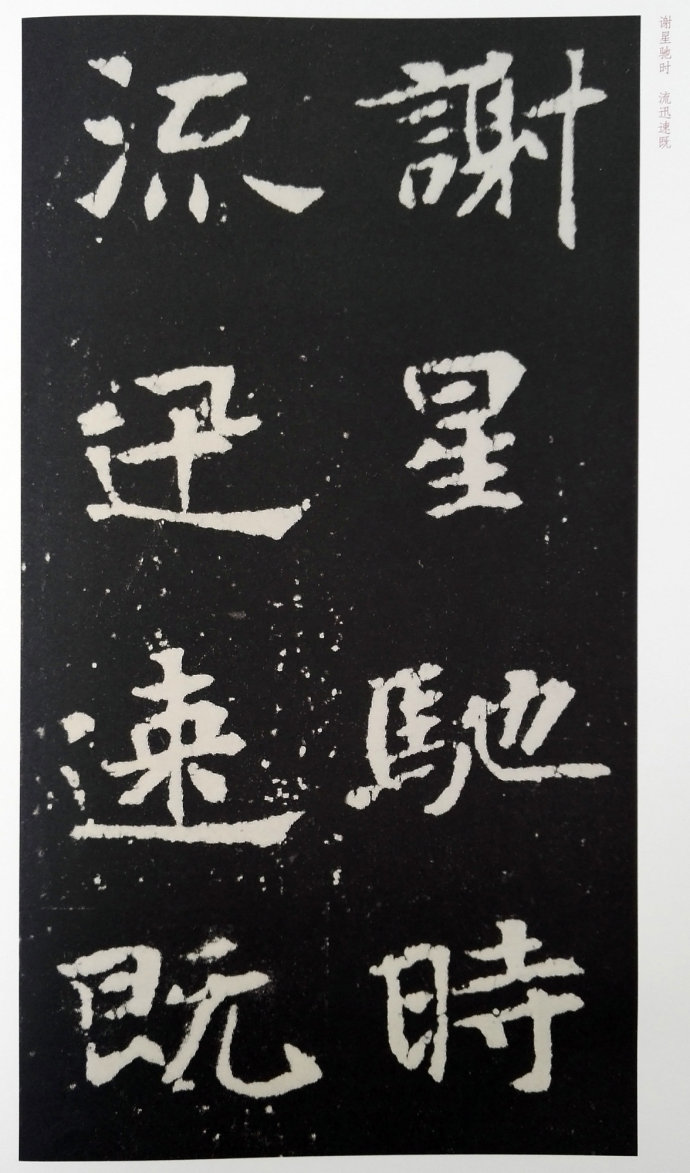 谢星驰时 流迅速既
謝星馳時
流迅速既